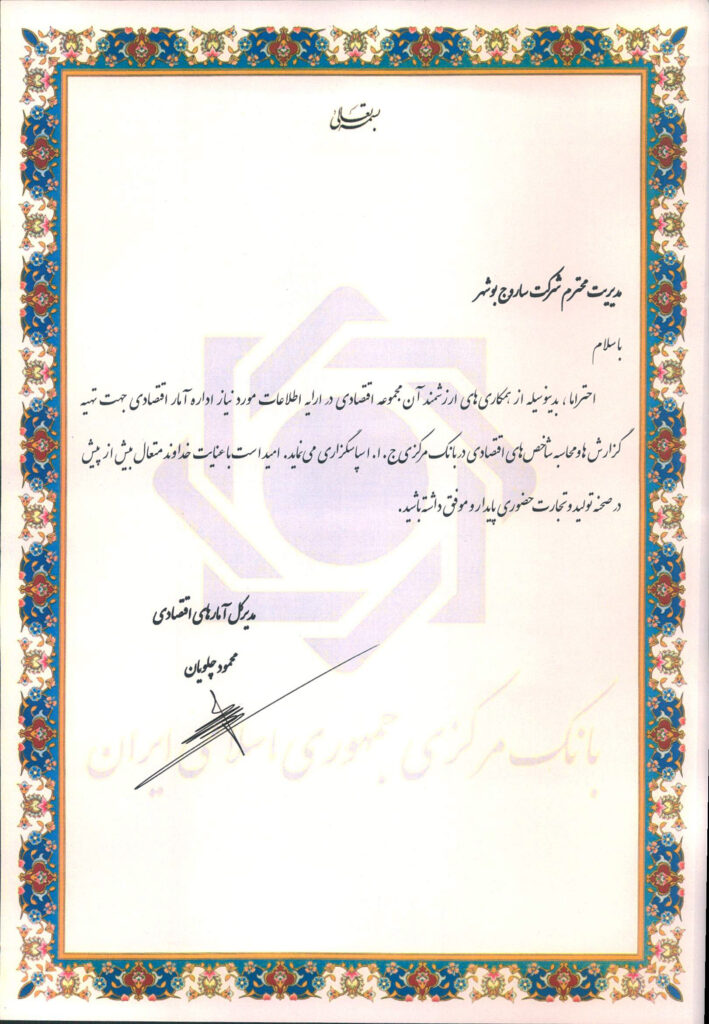 بسمه تعالی
مدیریت محترم شرکت ساروج بوشهر
با سلام
احتراما، بدینوسیله از همکاری‌های ارزشمند آن مجموعه اقتصادی در ارایه اطلاعات مورد نیاز اداره آمار اقتصادی جهت تهیه
گزارش ها و محاسبه شاخص های اقتصادی در بانک مرکزی ج.ا.ا سپاسگزاری می نماید. امید است با عنایت خداوند متعال بیش از پیش
در صحنه تولید و تجارت حضوری پایدار و موفق داشته باشید.
مدیر کل آمارهای اقتصادی
محمود چلویان
بانک مرکزی جمهوری اسلامی ایران